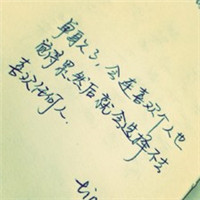 单身久了,会连喜欢个人也
觉得累然后就会选择不去
喜欢任何人.